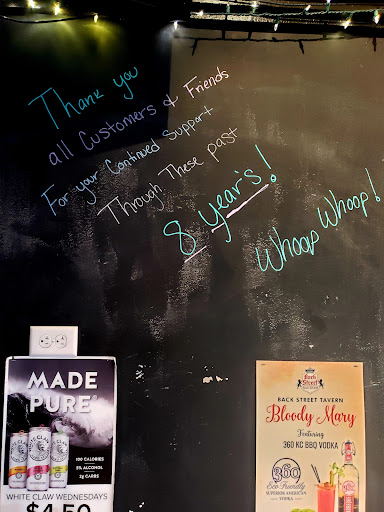 Thank you
all Customers & Friends
For your Continued Support
Through These past
8 year's!
Whoop Whoop!
MADE
PURE
100 CALORIES
5% ALCOHOL
2g CARBS
WHITE CLAW WEDNESDAYS
$4.50
Back
Street
BACK STREET TAVERN
Bloody Mary
Featuring
360 KC BBQ VODKA
360
Eco Friendly
SUPERIOR AMERICAN
VODKA